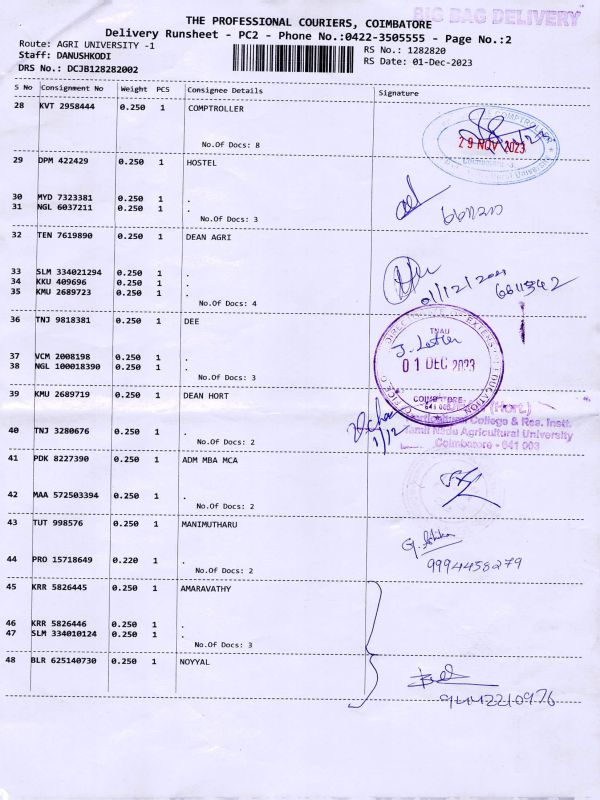 BIG BAG DELIVERY
THE PROFESSIONAL COURIERS, COIMBATORE
Delivery Runsheet - PC2 - Phone No.:0422-3505555 - Page No.:2
Route: AGRI UNIVERSITY -1
RS No.: 1282820
Staff: DANUSHKODI
RS Date: 01-Dec-2023
DRS No.: DCJB128282002
S No Consignment No Weight PCS Consignee Details Signature
28 KVT 2958444 0.250 1 COMPTROLLER
No.Of Docs: 8
29 NOV 2023
29 DPM 422429 0.250 1 HOSTEL
30 MYD 7323381 0.250 1 .
31 NGL 6037211 0.250 1 .
No.Of Docs: 3
32 TEN 7619890 0.250 1 DEAN AGRI
33 SLM 334021294 0.250 1 .
34 KKU 409696 0.250 1 .
35 KMU 2689723 0.250 1 .
No.Of Docs: 4
36 TNJ 9818381 0.250 1 DEE
TNAU
01 DEC 2023
COIMBATORE
641 003
37 VCM 2008198 0.250 1 .
38 NGL 100018390 0.250 1 .
No.Of Docs: 3
39 KMU 2689719 0.250 1 DEAN HORT
(Hort.)
College & Res. Instt.
Tamil Nadu Agricultural University
Coimbatore - 641 003
1/12
40 TNJ 3280676 0.250 1 .
No.Of Docs: 2
41 PDK 8227390 0.250 1 ADM MBA MCA
42 MAA 572503394 0.250 1 .
No.Of Docs: 2
43 TUT 998576 0.250 1 MANIMUTHARU
9994458279
44 PRO 15718649 0.220 1 .
No.Of Docs: 2
45 KRR 5826445 0.250 1 AMARAVATHY
46 KRR 5826446 0.250 1 .
47 SLM 334010124 0.250 1 .
No.Of Docs: 3
48 BLR 625140730 0.250 1 NOYYAL
9442210976